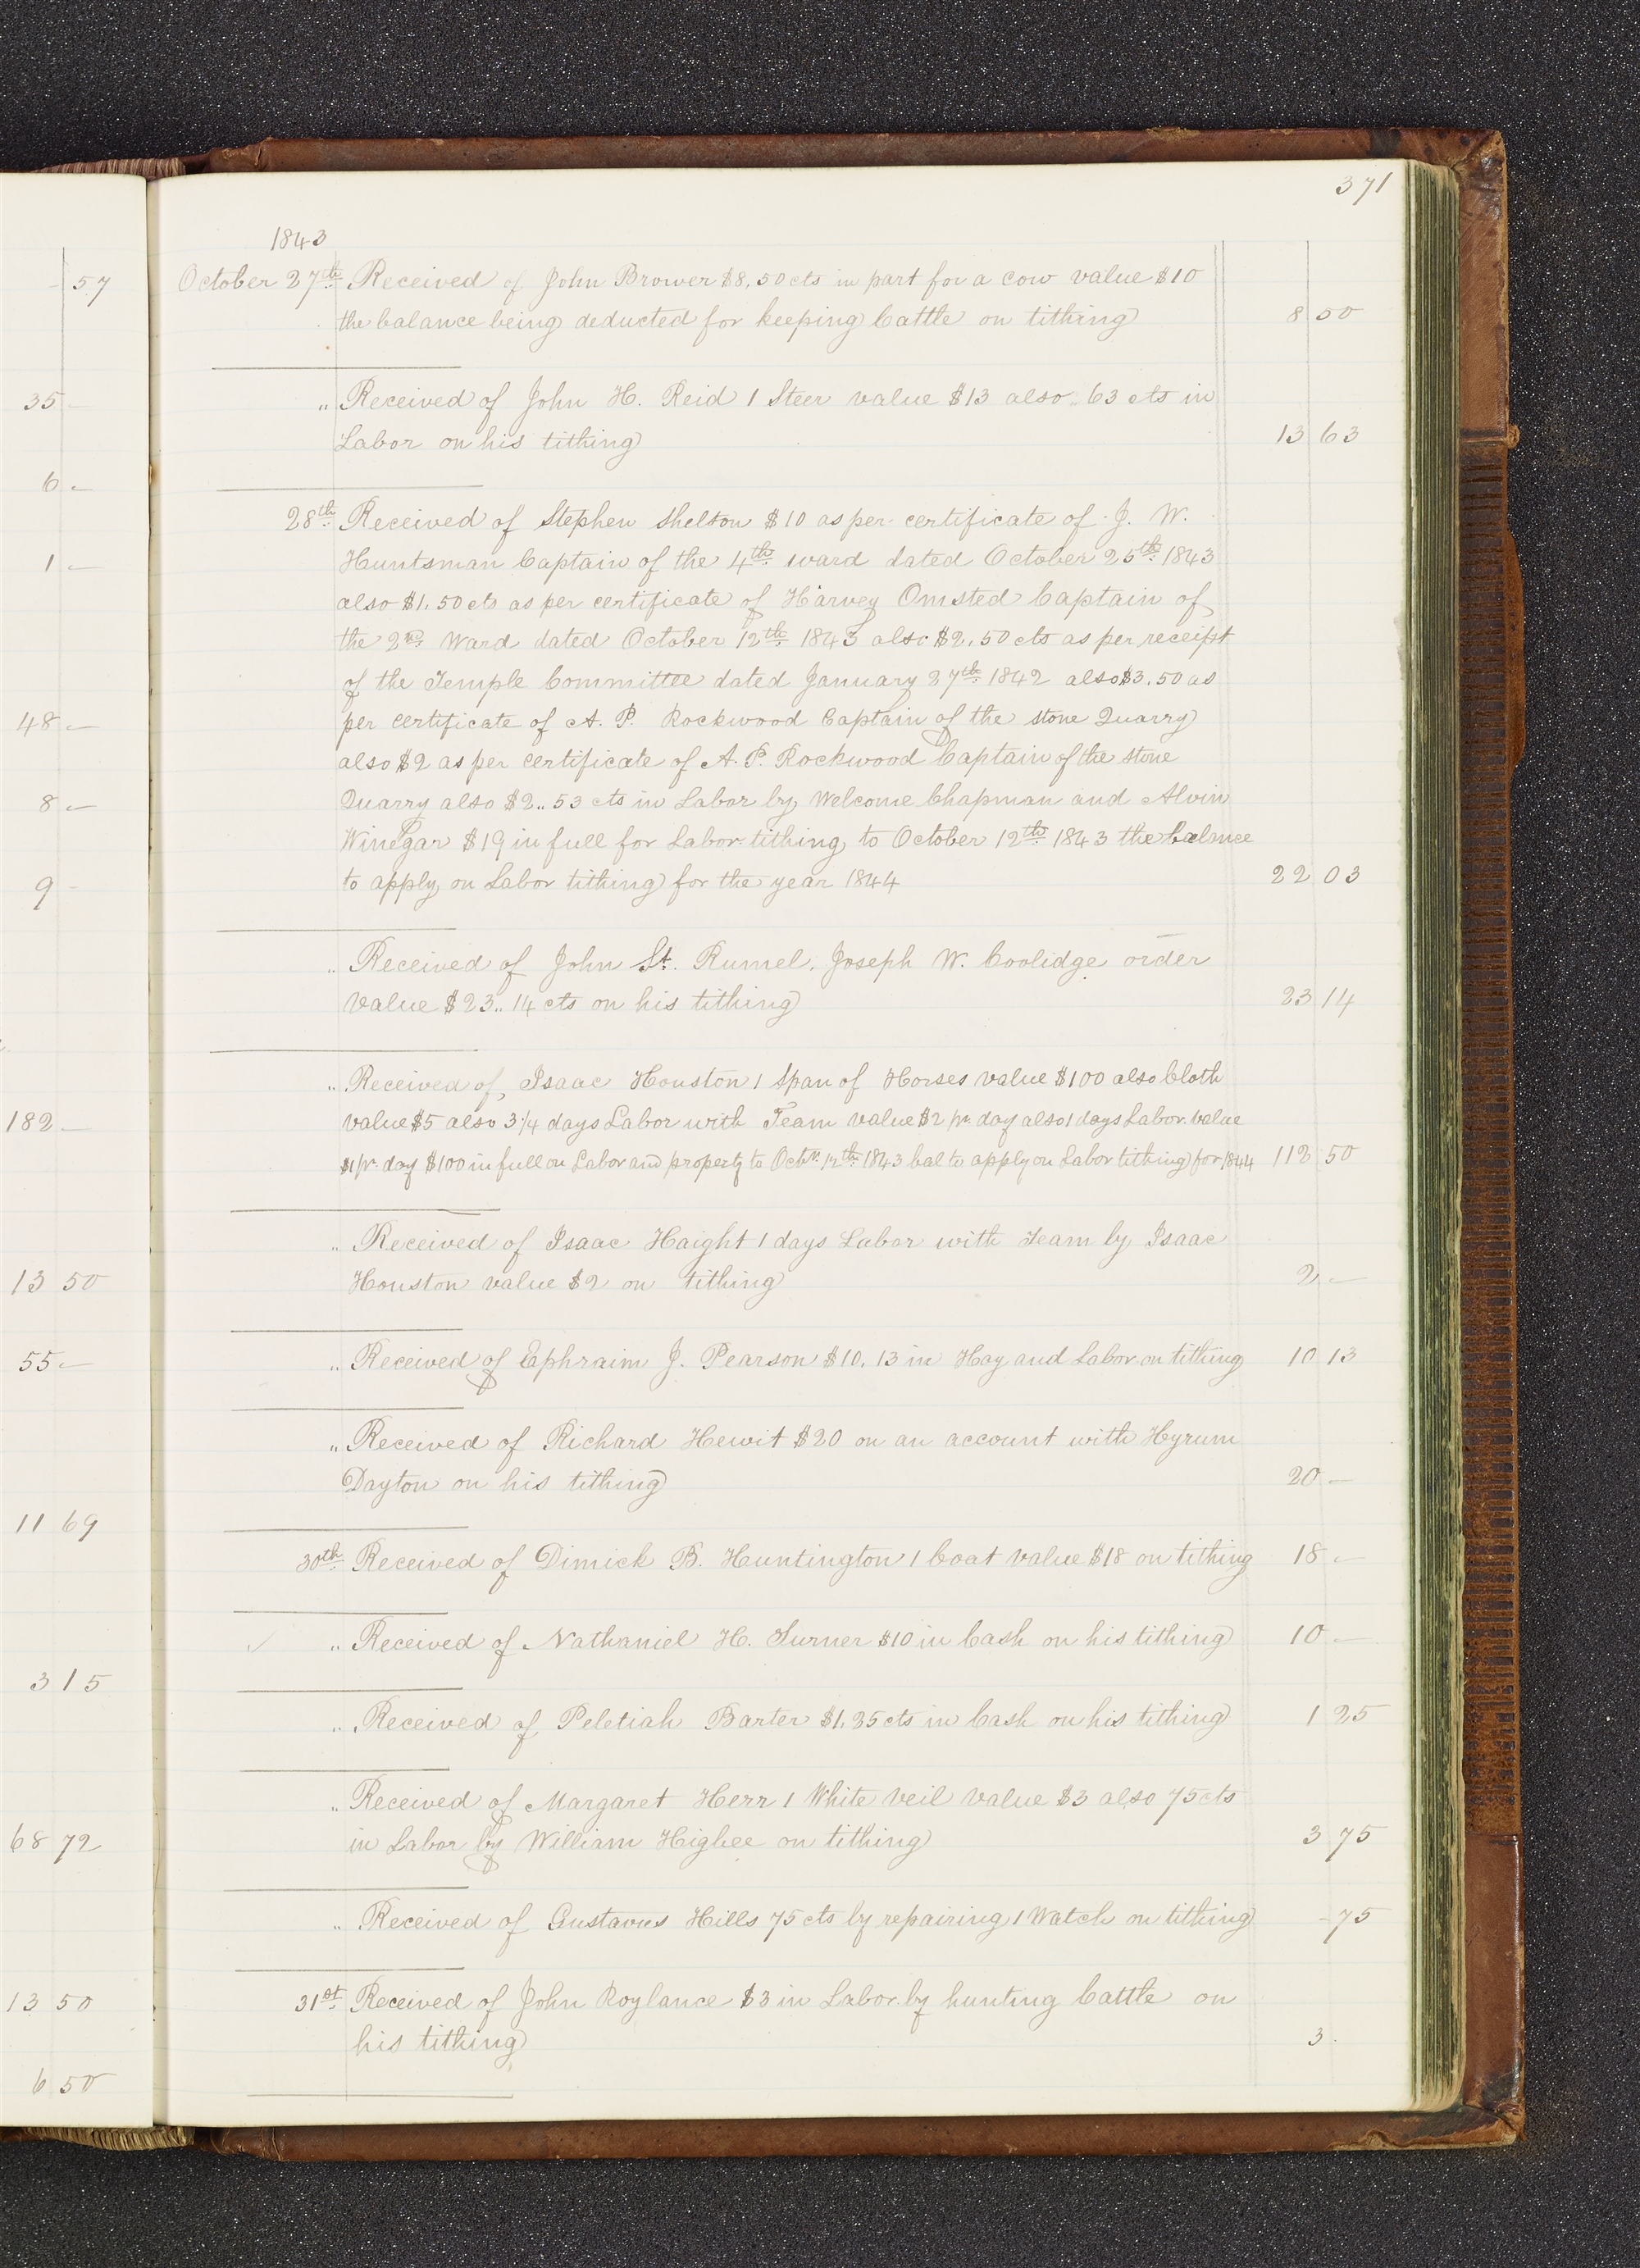 371
1843
October 27th Received of John Brower $8.50 cts in part for a cow value $10
the balance being deducted for keeping Cattle on tithing 8 50
" Received of John H. Reid 1 Steer value $13 also 63 cts in
Labor on his tithing 13 63
28th Received of Stephen Shelton $10 as per certificate of J. W.
Huntsman Captain of the 4th ward dated October 25th 1843
also $1.50 cts as per certificate of Harvey Omsted Captain of
the 2nd Ward dated October 12th 1843 also $2.50 cts as per receipt
of the Temple Committee dated January 27th 1842 also $3.50 as
per certificate of A. P. Rockwood Captain of the stone Quarry
also $2 as per certificate of A. P. Rockwood Captain of the stone
Quarry also $2..53 cts in Labor by Welcome Chapman and Alvin
Winegar $19 in full for Labor tithing to October 12th 1843 the balance
to apply on Labor tithing for the year 1844 22 03
" Received of John St. Rumel. Joseph W. Coolidge order
value $23..14 cts on his tithing 23 14
" Received of, Isaac Houston 1 Span of Horses value $100 also Cloth
value $5 also 3 1/4 days Labor with Team value $2 pr. day also 1 days Labor value
$1 pr. day $100 in full on Labor and property to Octr. 12th 1843 bal to apply on Labor tithing for 1844 112 50
" Received of Isaac Haight 1 days Labor with Team by Isaac
Houston value $2 on tithing 2 —
" Received of Ephraim J. Pearson $10.13 in Hay and Labor on tithing 10 13
" Received of Richard Hewit $20 on an account with Hyrum
Dayton on his tithing 20 —
30th Received of Dimick B. Huntington 1 Coat value $18 on tithing 18 —
✓ " Received of Nathaniel H. Turner $10 in Cash on his tithing 10 —
" Received of Peletiah Barter $1.25 cts in Cash on his tithing 1 25
" Received of Margaret Herr 1 White veil value $3 also 75 cts
in Labor by William Higbee on tithing 3 75
" Received of Gustavus Hills 75 cts by repairing 1 Watch on tithing - 75
31st Received of John Roylance $3 in Labor by hunting Cattle on
his tithing 3
- 57
35 -
6 -
1 -
48 -
8 -
9 -
182 -
13 50
55 -
11 69
3 15
68 72
13 50
6 50